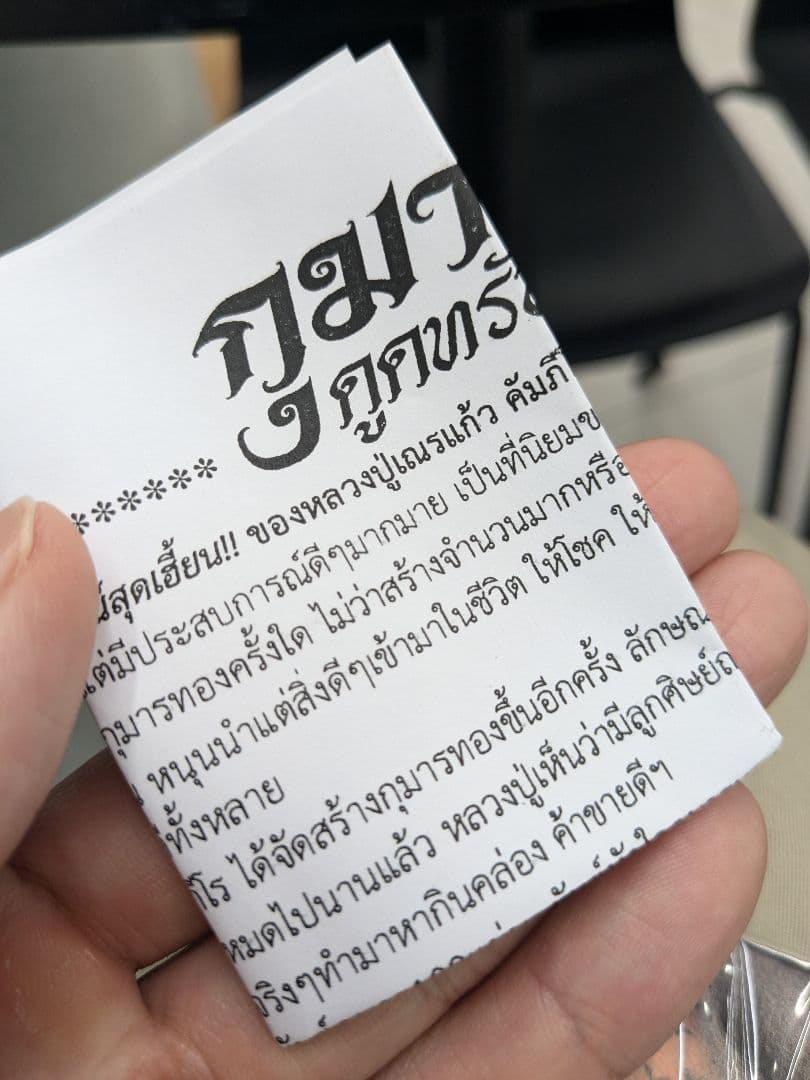 กุมา
ดูดทรั
******
น์สุดเฮี้ยน!! ของหลวงปู่เณรแก้ว คัมภี
แต่มีประสบการณ์ดีๆมากมาย เป็นที่นิยมข
กุมารทองครั้งใด ไม่ว่าสร้างจำนวนมากหรือ
หนุนนำแต่สิ่งดีๆเข้ามาในชีวิต ให้โชค ให้
ทั้งหลาย
โร ได้จัดสร้างกุมารทองขึ้นอีกครั้ง ลักษณ
หมดไปนานแล้ว หลวงปู่เห็นว่ามีลูกศิษย์ถ
จริงๆทำมาหากินคล่อง ค้าขายดีฯ